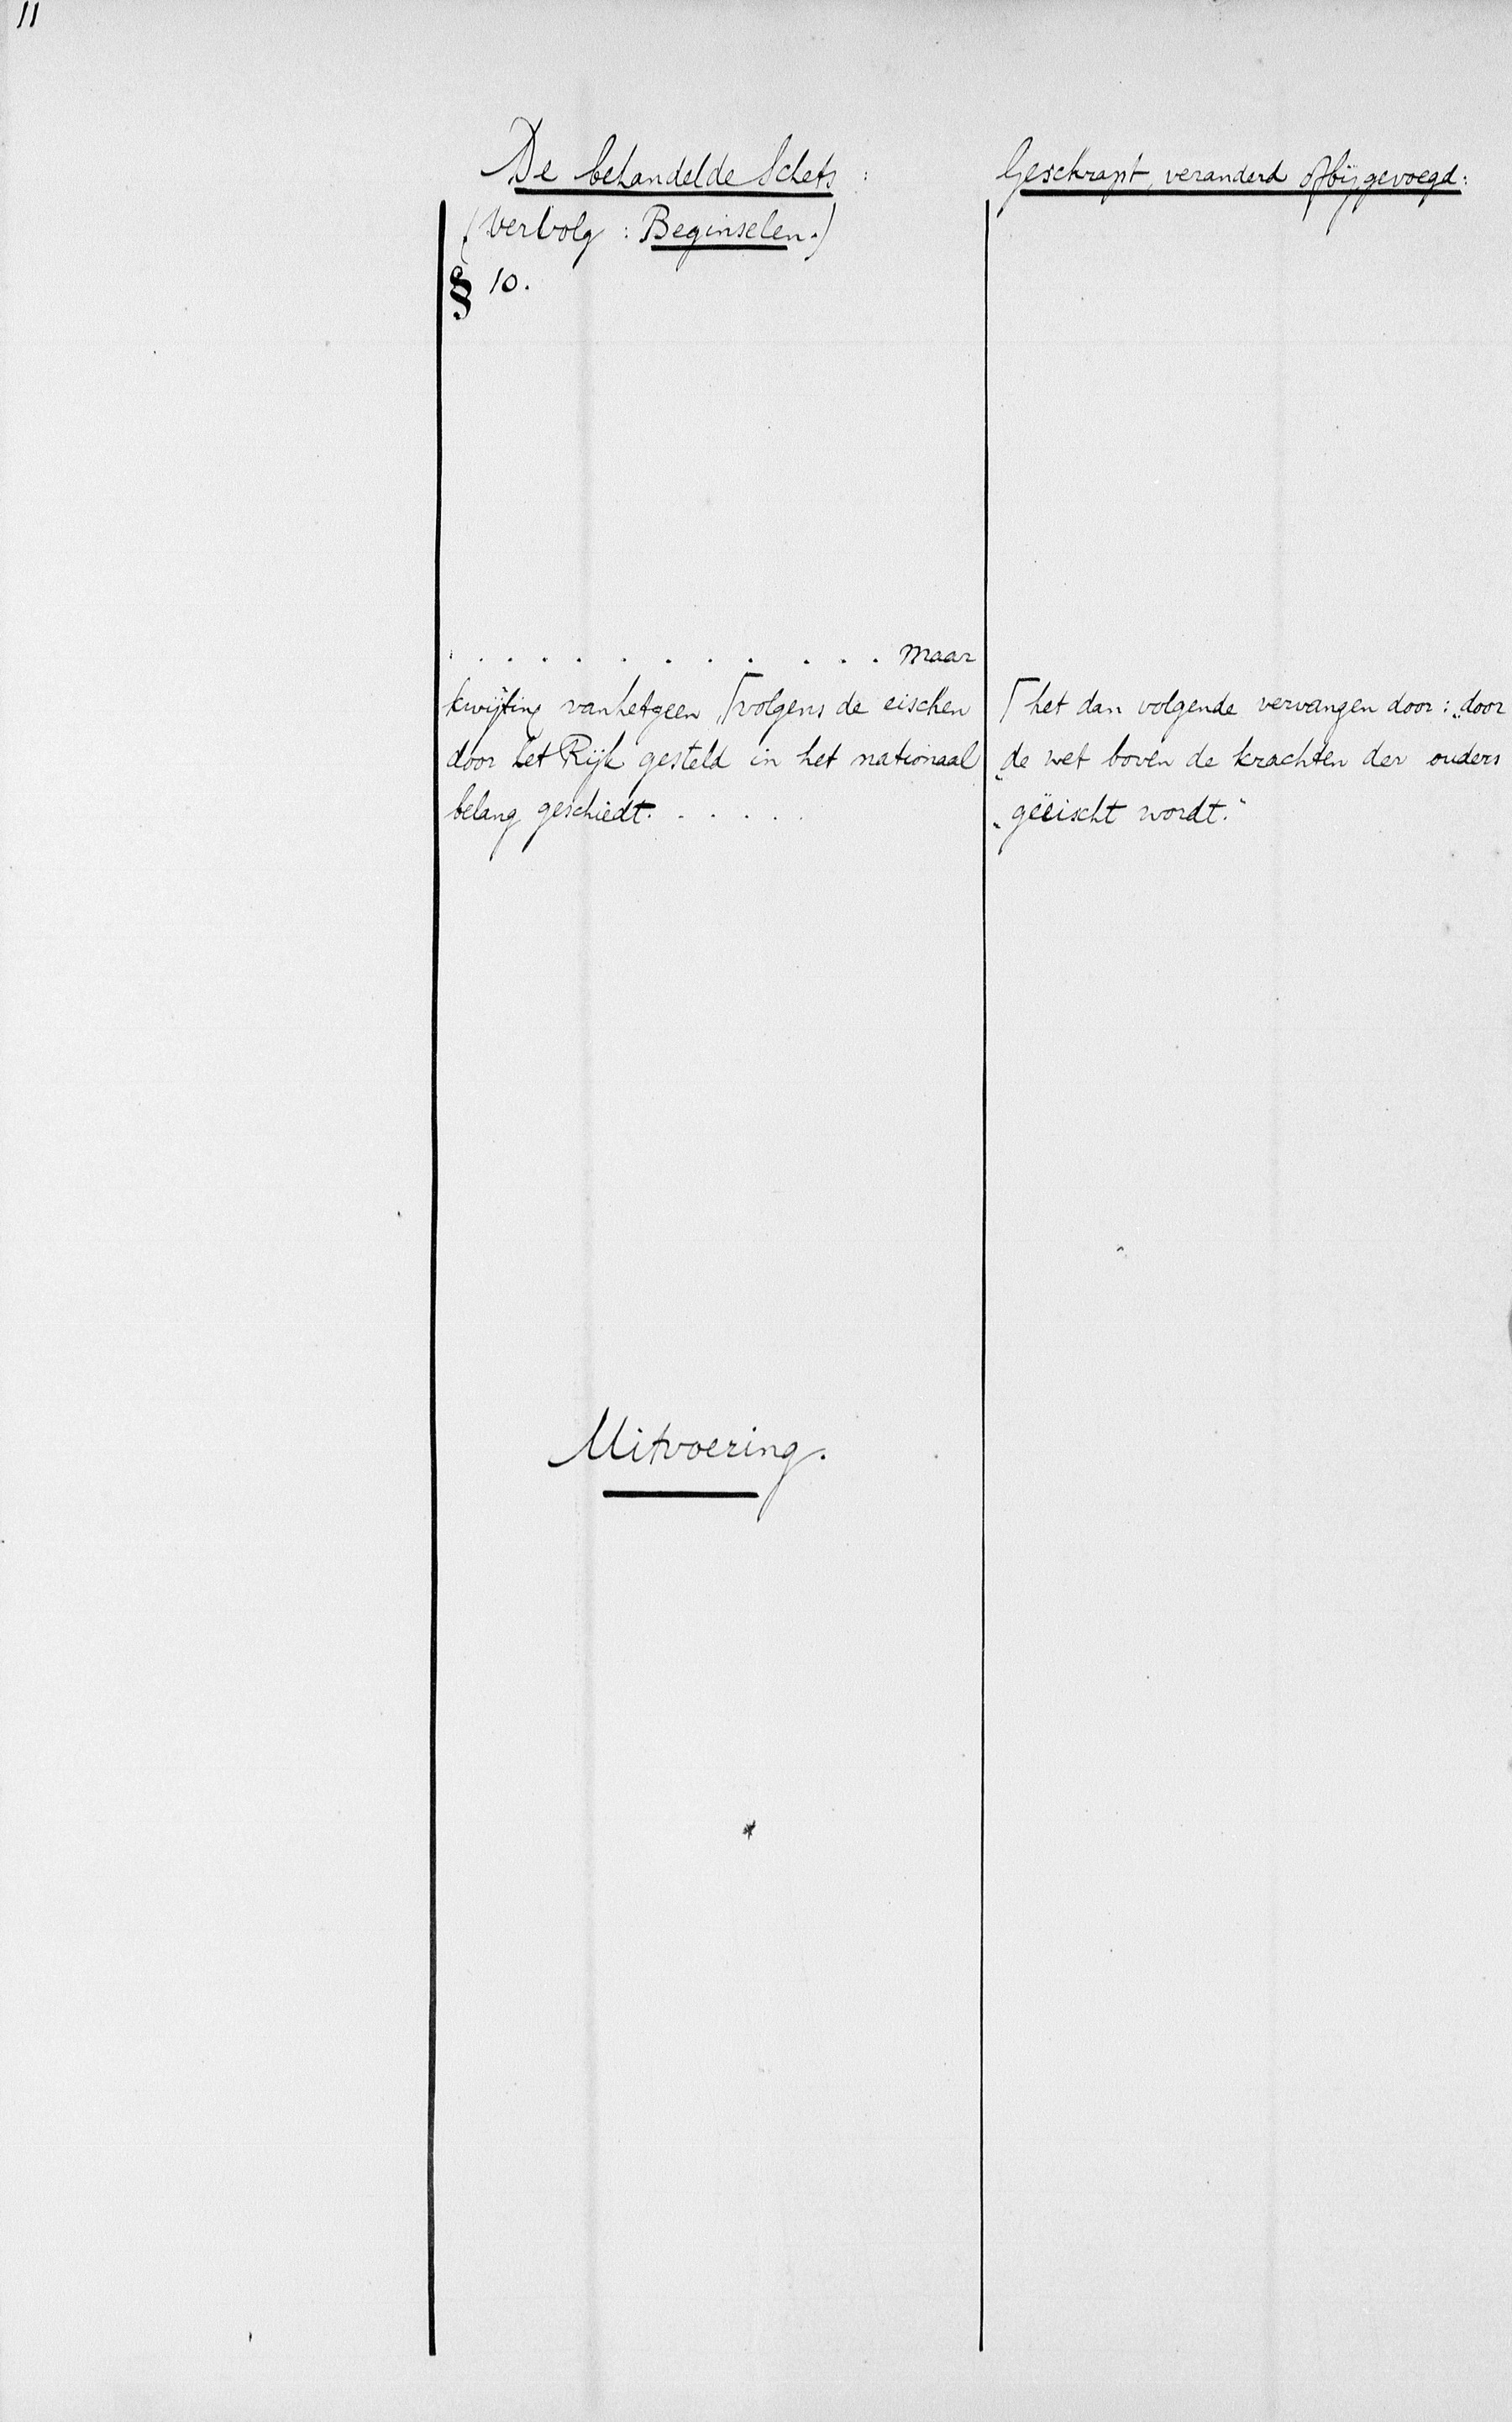 11
De behandelde Schets:
(Vervolg: Beginselen.)
§ 10.
. . . . . . . . . . . . maar
kwijting vanhetgeen ⌈volgens de eischen
door het Rijk gesteld in het nationaal
belang geschiedt. . . . . .
Uitvoering.
Geschrapt, veranderd of bijgevoegd:
⌈ het dan volgende vervangen door: „door
„de wet boven de krachten der ouders
„geëischt wordt.”